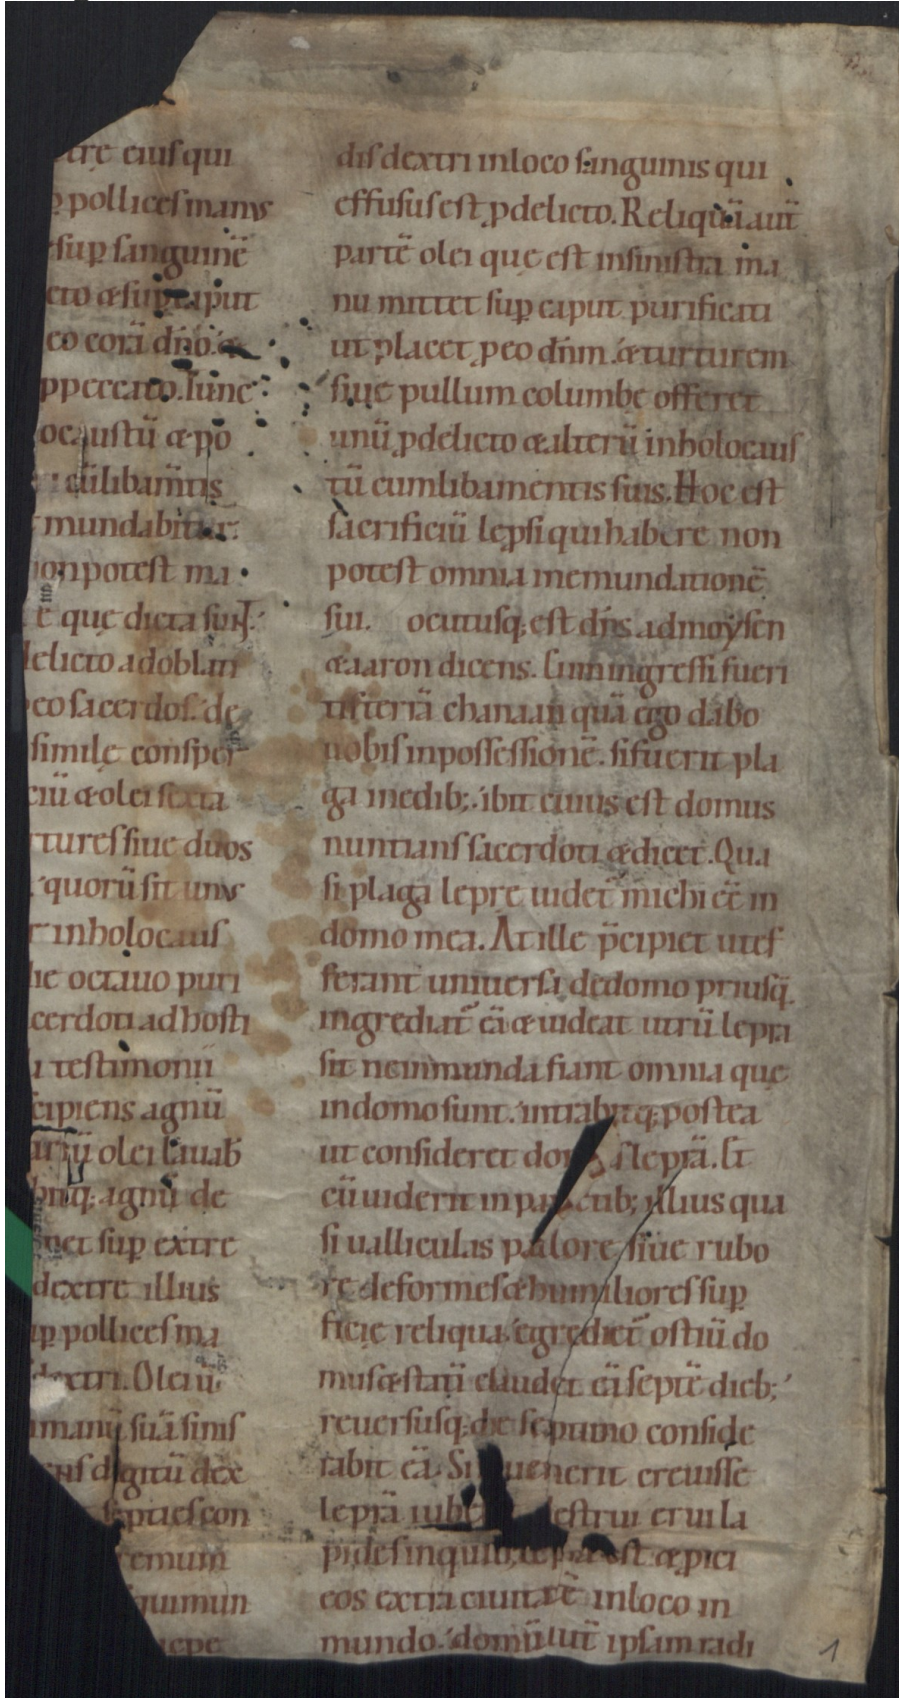 eius qui
pollices manus
sup̱ sanguinē
⁊ sup̱ caput
corā dn̄o. ⁊
p peccato. Tunc
ocaustū ⁊ po
cū libam̄tis
mundabitur.
non potest ma
que dicta sunt.
delicto ad oblati
eo sacerdos. de
simile consper
⁊ olei sexta
rtures siue duos
quorū sit unus
in holocaus
die octauo puri
cerdoti ad hosti
testimonii
cipiens agnū
olei leuab̄
bitq; agnū de
net sup̱ extre
dextre illius
up̱ pollices ma
dextri. Olei ū
manū suā sinis
digitū dex
septies con
remum
guimun
dis dextri in loco sanguinis qui
effusus est ꝓ delicto. Reliquā aut̄
partē olei que est in sinistra ma
nu mittet sup̱ caput purificati
ut placet ꝓ eo dn̄m. ⁊ turturem
siue pullum columbe offeret
unū ꝓ delicto ⁊ alterū in holocaus
tū cum libamentis suis. Hoc est
sacrificiū leprosi qui habere non
potest omnia in emundationē
sui. ocutusq; est dn̄s ad moysen
⁊ aaron dicens. Cum ingressi fueri
tis terrā chanaan quā ego dabo
uobis in possessionē. si fuerit pla
ga in edib; ibit cuius est domus
nuntians sacerdoti ⁊ dicet. Qua
si plaga lepre uidet̄ michi eē in
domo mea. At ille p̄cipiet ut ef
ferant uniuersa de domo priusq̄
ingrediat̄ eā ⁊ uideat utrū lepra
sit ne inmunda fiant omnia que
in domo sunt. intrabitq; postea
ut consideret leprā. Et
cū uiderit in parietib; illius qua
si ualliculas pallore siue rubo
re deformes ⁊ humiliores sup̱
ficie reliqua. egrediet̄ ostiū do
mus ⁊ statī claudet eā septē dieb;
reuersusq; die septimo conside
rabit eā. Si inuenerit creuisse
leprā iubebit destrui erui la
pides in quib; lepra est ⁊ proici
eos extra ciuitatē in loco in
mundo. domū aut̄ ipsam radi
1